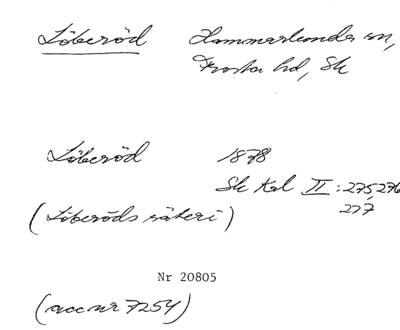 Löberöd Hammarlunda sn,
Frosta hd, Sk
Löberöd 1878
Sk Kal II: 275, 276
277
(Löberöds säteri)
Nr 20805
(acc nr 7254)